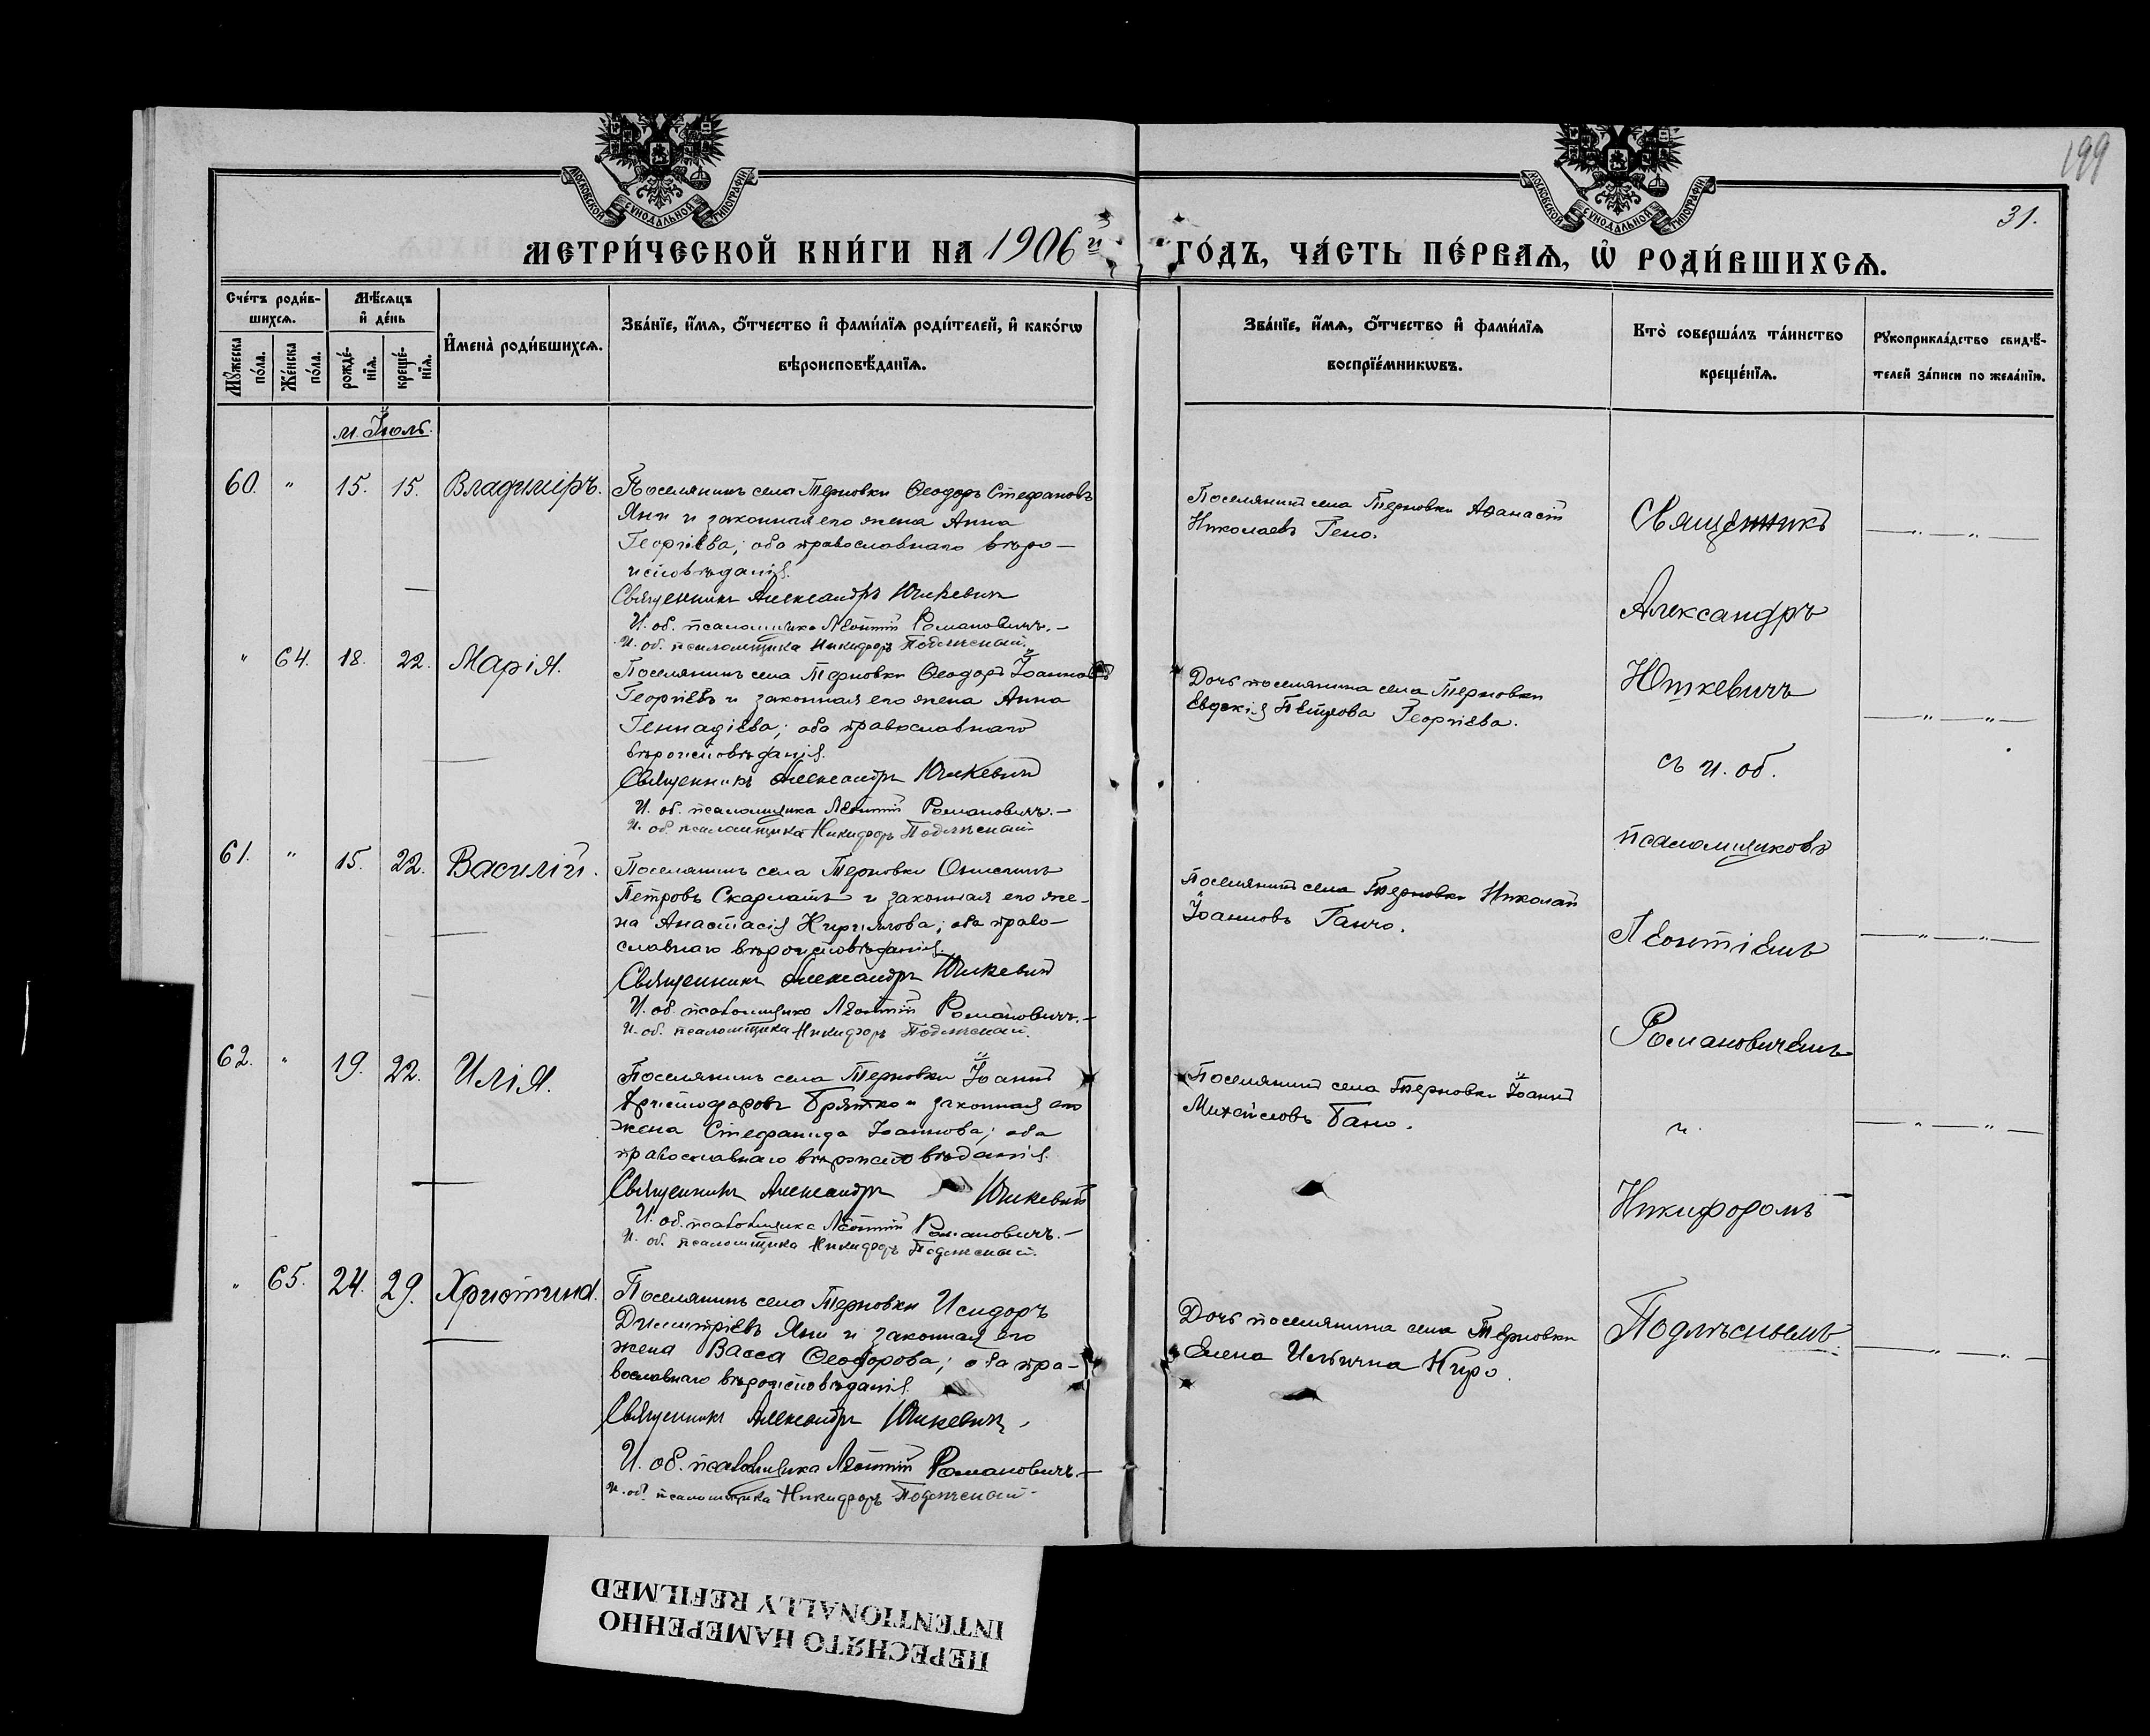 199
31.
МОСКОВСКОЙ СУНОДАЛЬНОЙ ТИПОГРАФІИ
МОСКОВСКОЙ СУНОДАЛЬНОЙ ТИПОГРАФІИ
МЕТРИ́ЧЕСКОЙ КНИ́ГИ НА 1906й
ГО́ДЪ, ЧА́СТЬ ПЕ́РВАѦ, Ѡ҆ РОДИ́ВШИХСѦ.
Сче́тъ роди́в-
шихсѧ.
Мѣ́сѧцъ
и҆ де́нь
Мꙋ́жеска
по́ла.
Же́нска
по́ла.
рожде́-
нїѧ.
креще́-
нїѧ.
И҆мена̀ роди́вшихсѧ.
Зва́нїе, и҆́мѧ, ѻ҆́тчество и҆ фами́лїѧ роди́телей, и҆ како́гѡ
вѣроисповѣ́данїѧ.
Зва́нїе, и҆́мѧ, ѻ҆́тчество и҆ фами́лїѧ
воспрїе́мникѡвъ.
Кто̀ соверша́лъ та́инство
креще́нїѧ.
Рꙋкоприкла́дство свидѣ́-
телей за́писи по жела́нїю.
м. Іюль.
60. " 15. 15. Владиміръ.
Поселянинъ села Терновки Ѳеодоръ Стефановъ
Яни и законная его жена Анна
Георгіева; оба православнаго вѣро-
исповѣданія.
Священникъ Александръ Юшкевич
И. об. псаломщика Леонтій Романовичъ.-
И. об. псаломщика Никифоръ Подлѣсный.
Поселянинъ села Терновки Аѳанасій
Николаевъ Гено.
" 64. 18. 22. Марія.
Поселянинъ села Терновки Ѳеодоръ Іоанновъ
Георгіевъ и законная его жена Анна
Геннадіева; оба православнаго
вѣроисповѣданія.
Священникъ Александръ Юшкевич
И. об. псаломщика Леонтій Романовичъ.-
И. об. псаломщика Никифоръ Подлѣсный
Дочь поселянина села Терновки
Евдокія Петрова Георгіева.
61. " 15. 22. Василій.
Поселянинъ села Терновки
Петровъ Скарлатъ и законная его же-
на Анастасія Кириллова; оба право-
славнаго вѣроисповѣданія.
Священникъ Александръ Юшкевич
И. об. псаломщика Леонтій Романовичъ.-
И. об. псаломщика Никифоръ Подлѣсный.
Поселянинъ села Терновки Николай
Іоанновъ Ганчо.
62. " 19. 22. Илія.
Поселянинъ села Терновки Іоаннъ
Христофоровъ Брятко и законная его
жена Стефанида Іоаннова; оба
православнаго вѣроисповѣданія.
Священникъ Александръ Юшкевич
И. об. псаломщика Леонтій Романовичъ.-
И. об. псаломщика Никифоръ Подлѣсный.
Поселянинъ села Терновки Іоаннъ
Михайловъ Бано.
" 65. 24. 29. Христина.
Поселянинъ села Терновки Исидоръ
Димитріевъ Яни и законная его
жена Васса Ѳеодорова; оба пра-
вославнаго вѣроисповѣданія.
Священникъ Александръ Юшкевич
И. об. псаломщика Леонтій Романовичъ.-
И. об. псаломщика Никифоръ Подлѣсный.
Дочь поселянина села Терновки
Елена Ильина Киро.
Священникъ
Александръ
Юшкевичъ
съ и. об.
псаломщиковъ
Леонтіемъ
Романовичемъ
и
Никифоромъ
Подлѣснымъ
ПЕРЕСНЯТО НАМЕРЕННО
INTENTIONALLY REFILMED